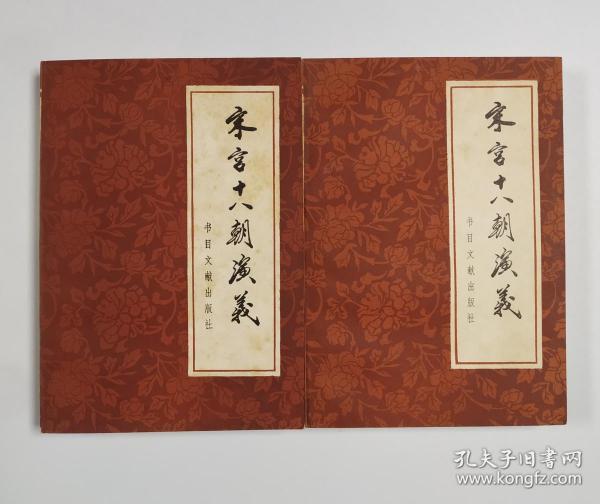 宋宫十八朝演义
书目文献出版社
宋宫十八朝演义
书目文献出版社
孔夫子旧书网
www.kongfz.com